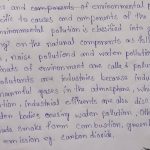 es and components of environmental p
cific to causes and components of the
environmental pollution is classified into
ng) on the natural components as foll
n, noise pollution and water pollution
onents of environment are called pollut
ollutants are industries because indu
armful gases in the atmosphere, whi
ution, industrial effluents are also disc
ter bodies causing water pollution. Oth
clude smoke form combustion, green
emission eg. carbon dioxide.